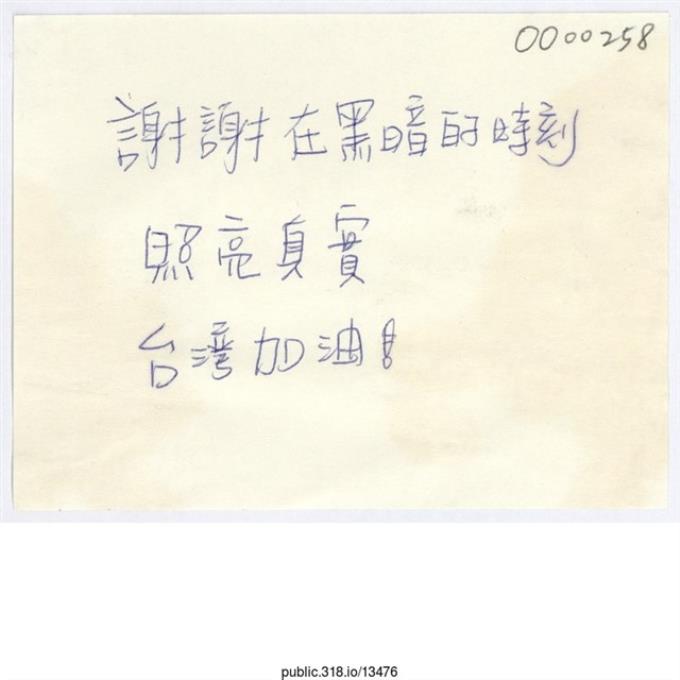 0000258
謝謝在黑暗的時刻
照亮真實
台灣加油!
public.318.io/13476